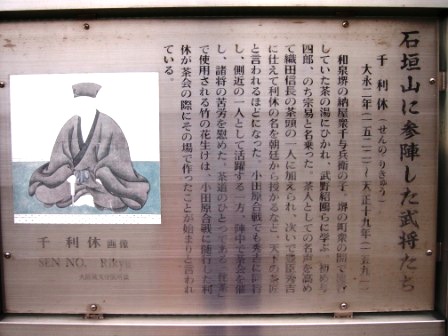 石垣山に参陣した武将たち
千利休(せんのりきゅう)
大永二年(一五二二)~天正十九年(一五九一)
和泉堺の納屋衆千与兵衛の子。堺の町衆の間で
していた茶の湯にひかれ、武野紹鷗らに学ぶ。初め与
四郎、のち宗易と名乗った。茶人としての名声を高め
て織田信長の茶頭の一人に加えられ、次いで豊臣秀吉
に仕えて利休の名を朝廷から授かるなど、天下の茶匠
と言われるほどになった。小田原合戦でも秀吉に
し、側近の一人として活躍する一方、陣中で茶会を催
し、諸将の苦労を慰めた。茶道のひとつである
で使用される竹の花生けは、小田原合戦に随行した利
休が茶会の際にその場で作ったことが始まりと言われ
ている。
千利休画像
SEN NO. Rikyu